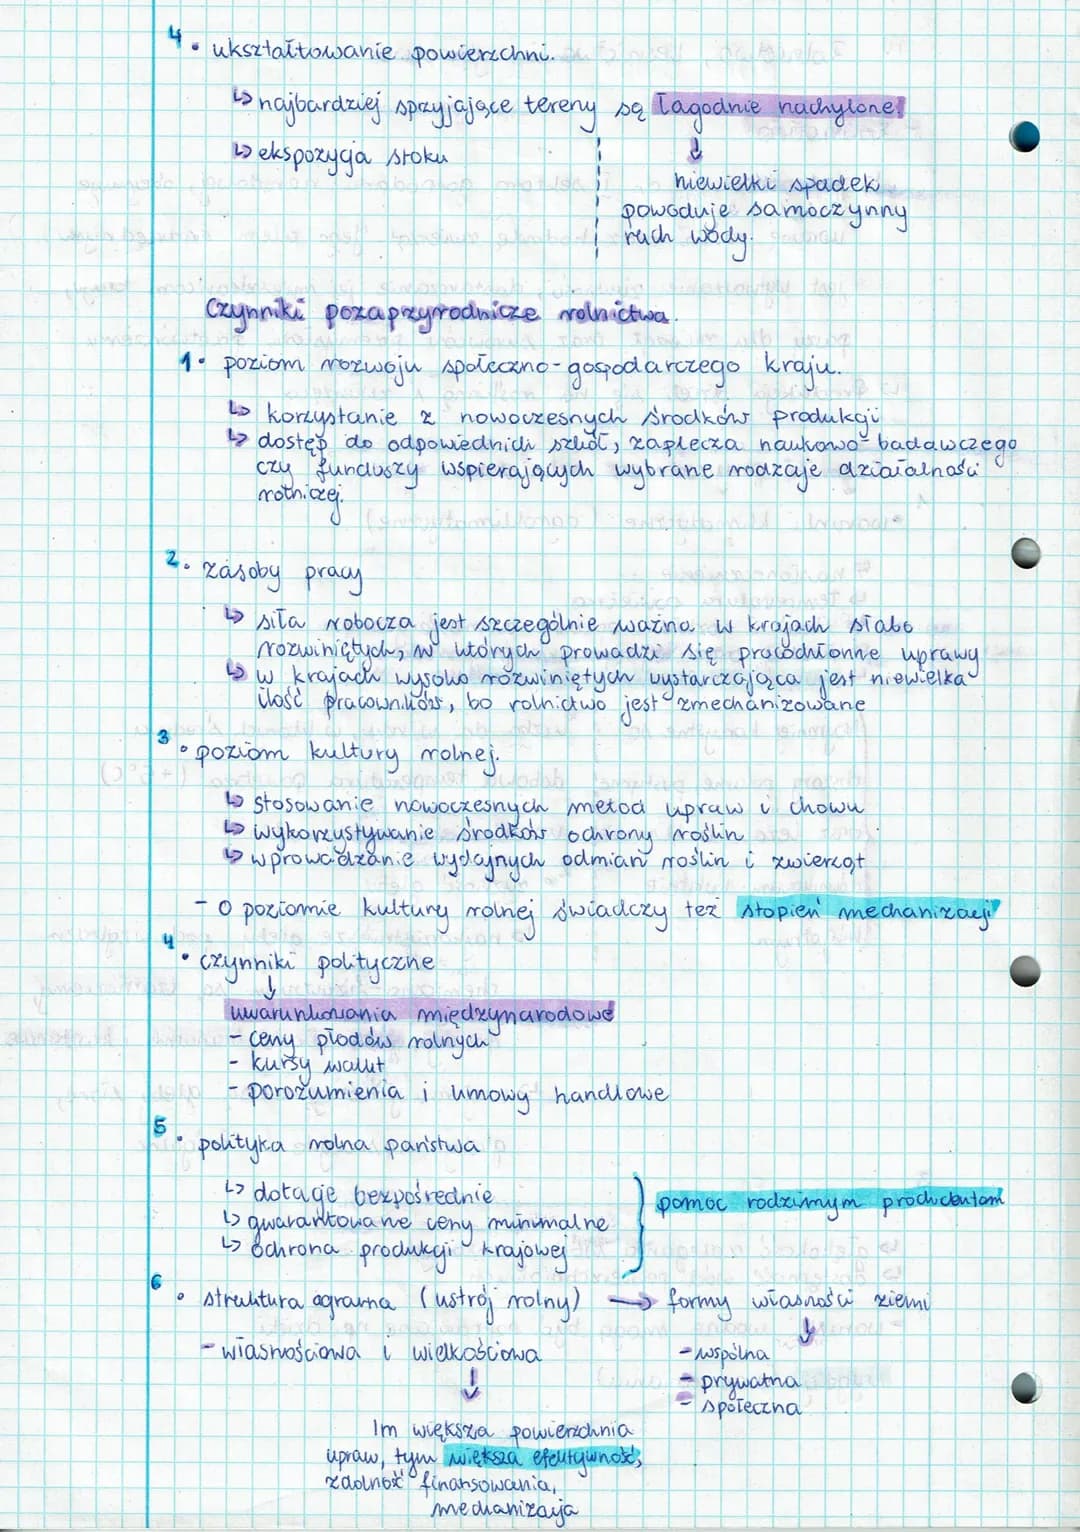 4. ukształtowanie powierzchni.
↳ najbardziej sprzyjające tereny są łagodnie nachylone!
↓
↳ ekspozycja stoku
niewielki spadek
powoduje samoczynny
ruch wody.
Czynniki pozaprzyrodnicze rolnictwa.
1. poziom rozwoju społeczno-gospodarczego kraju.
↳ korzystanie z nowoczesnych środków produkcji
↳ dostęp do odpowiednich szkół, zaplecza naukowo-badawczego
czy funduszy wspierających wybrane rodzaje działalności
rolniczej.
2. zasoby pracy
↳ siła robocza jest szczególnie ważna w krajach słabo
rozwiniętych, w których prowadzi się pracochłonne uprawy
↳ w krajach wysoko rozwiniętych wystarczająca jest niewielka
ilość pracowników, bo rolnictwo jest zmechanizowane
3. poziom kultury rolnej.
↳ stosowanie nowoczesnych metod upraw i chowu
↳ wykorzystywanie środków ochrony roślin
↳ wprowadzanie wydajnych odmian roślin i zwierząt
- O poziomie kultury rolnej świadczy też stopień mechanizacji
4. czynniki polityczne
↓
uwarunkowania międzynarodowe
- ceny płodów rolnych
- kursy walut
- porozumienia i umowy handlowe
5. polityka rolna państwa
↳ dotacje bezpośrednie
pomoc rodzimym producentom
↳ gwarantowane ceny minimalne
↳ ochrona produkcji krajowej
6. struktura agrarna (ustrój rolny) → formy własności ziemi
↓
- własnościowa i wielkościowa
- wspólna
- prywatna
- społeczna
↓
Im większa powierzchnia
upraw, tym większa efektywność,
zdolność finansowania,
mechanizacja